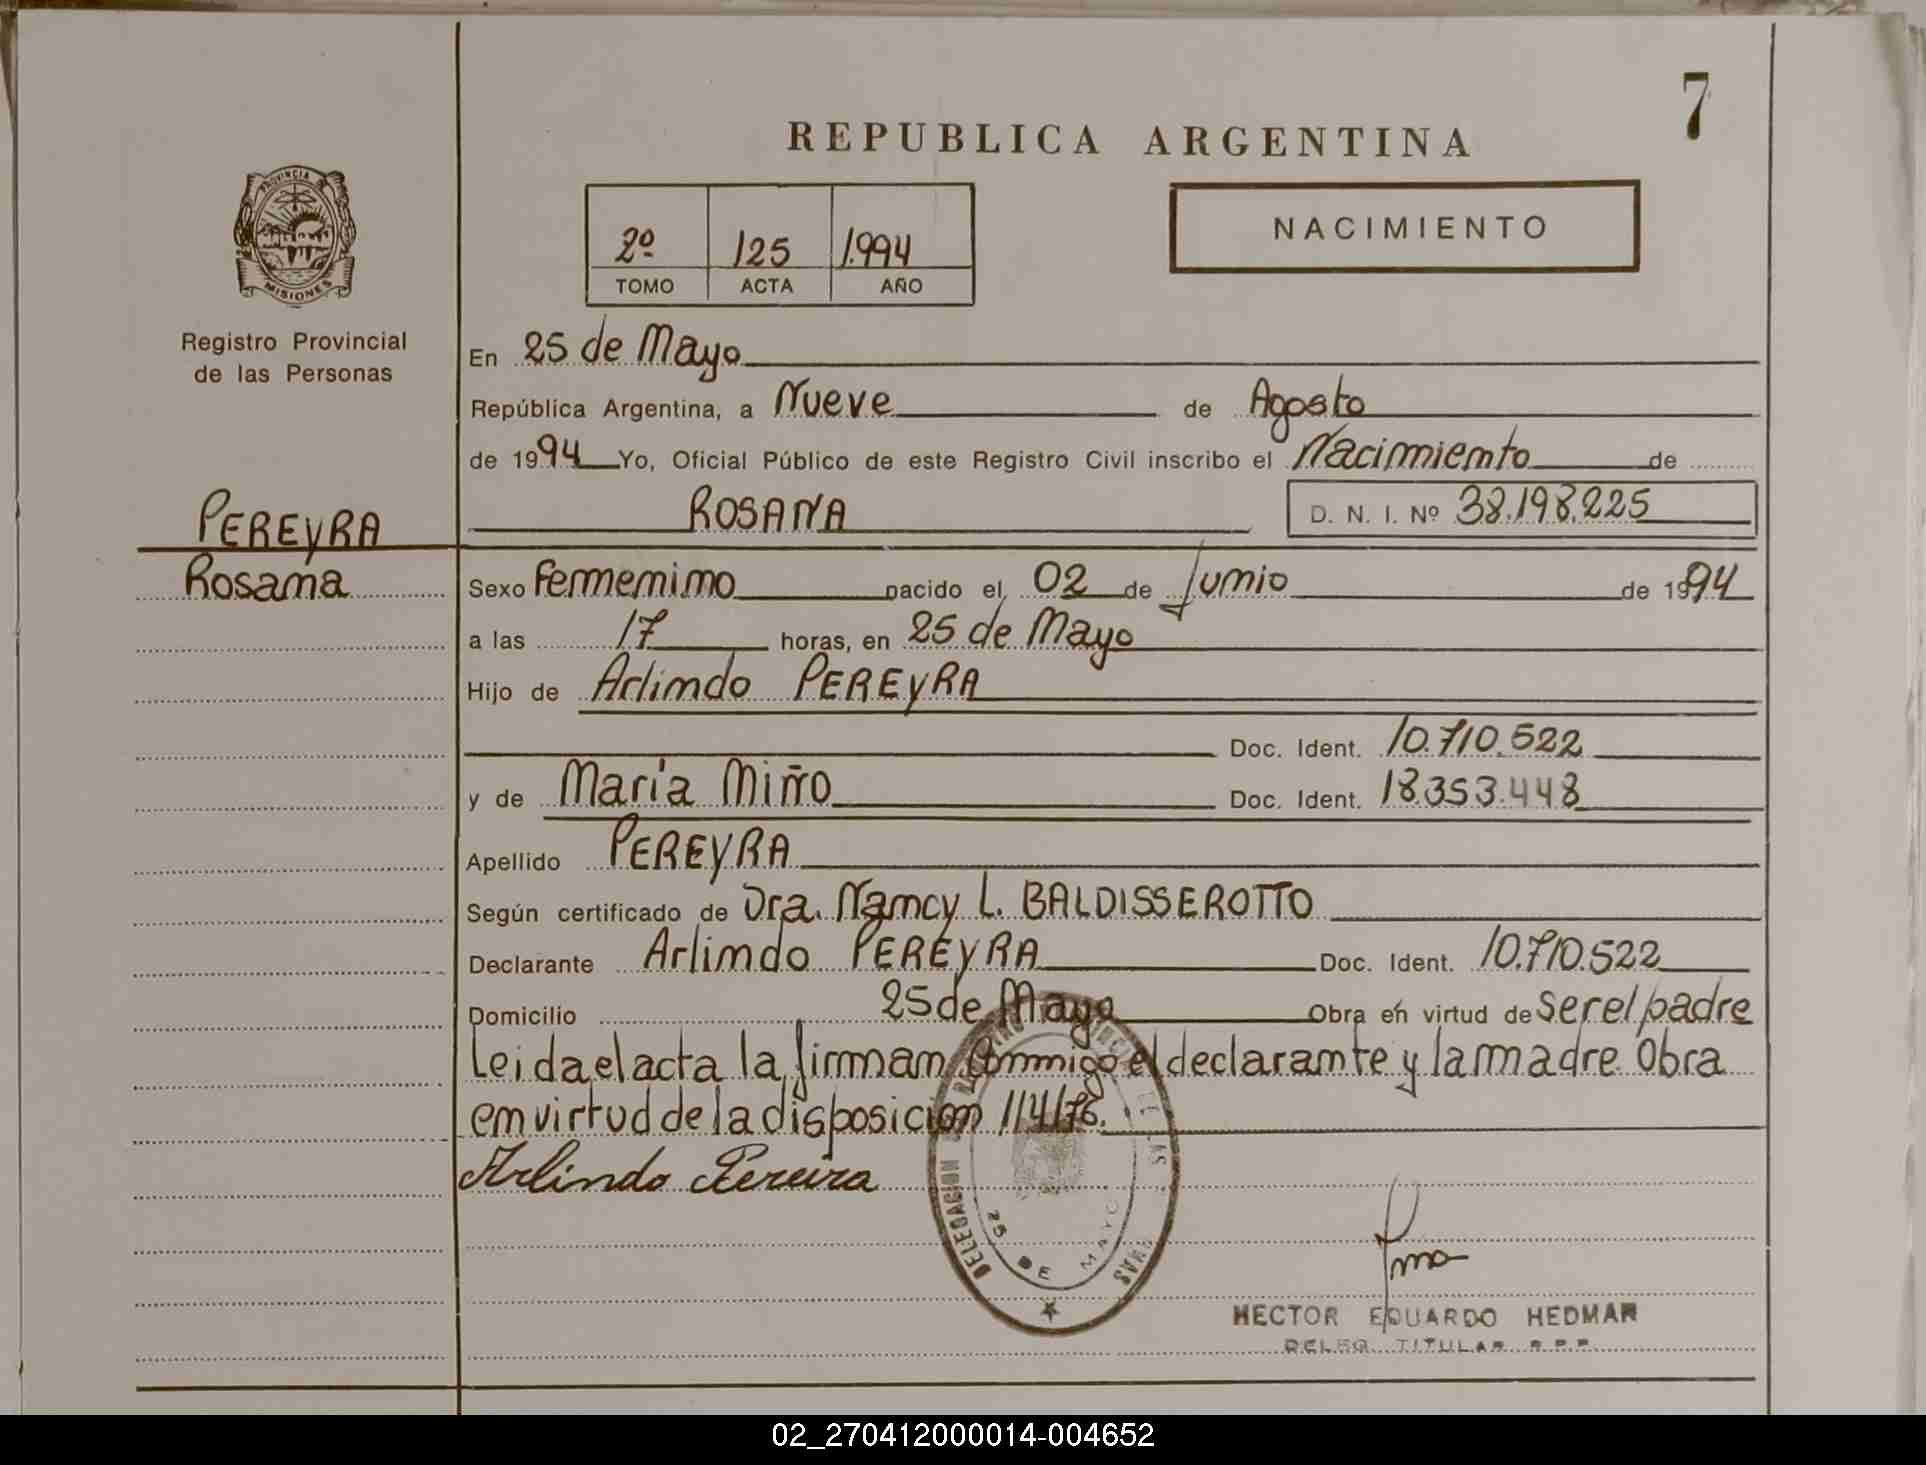 7
REPUBLICA ARGENTINA
PROVINCIA DE
MISIONES
Registro Provincial
de las Personas
2º 125 1.994
TOMO ACTA AÑO
NACIMIENTO
En 25 de Mayo
República Argentina, a Nueve de Agosto
de 1994 Yo, Oficial Público de este Registro Civil inscribo el Nacimiento de
PEREYRA
Rosana
ROSANA D. N. I. Nº 38.198.225
Sexo Femenino nacido el 02 de Junio de 1994
a las 17 horas, en 25 de Mayo
Hijo de Arlindo PEREYRA
Doc. Ident. 10.710.522
y de María Miño Doc. Ident. 18.353.448
Apellido PEREYRA
Según certificado de Dra. Nancy L. BALDISSEROTTO
Declarante Arlindo PEREYRA Doc. Ident. 10.710.522
Domicilio 25 de Mayo Obra en virtud de ser el padre
Leida el acta la firman conmigo el declarante y la madre. Obra
en virtud de la disposicion 1/4/76.
Arlindo Pereira
DELEGACION
25 DE MAYO
HECTOR EDUARDO HEDMAN
DELEG. TITULAR R.P.P.
02_270412000014-004652